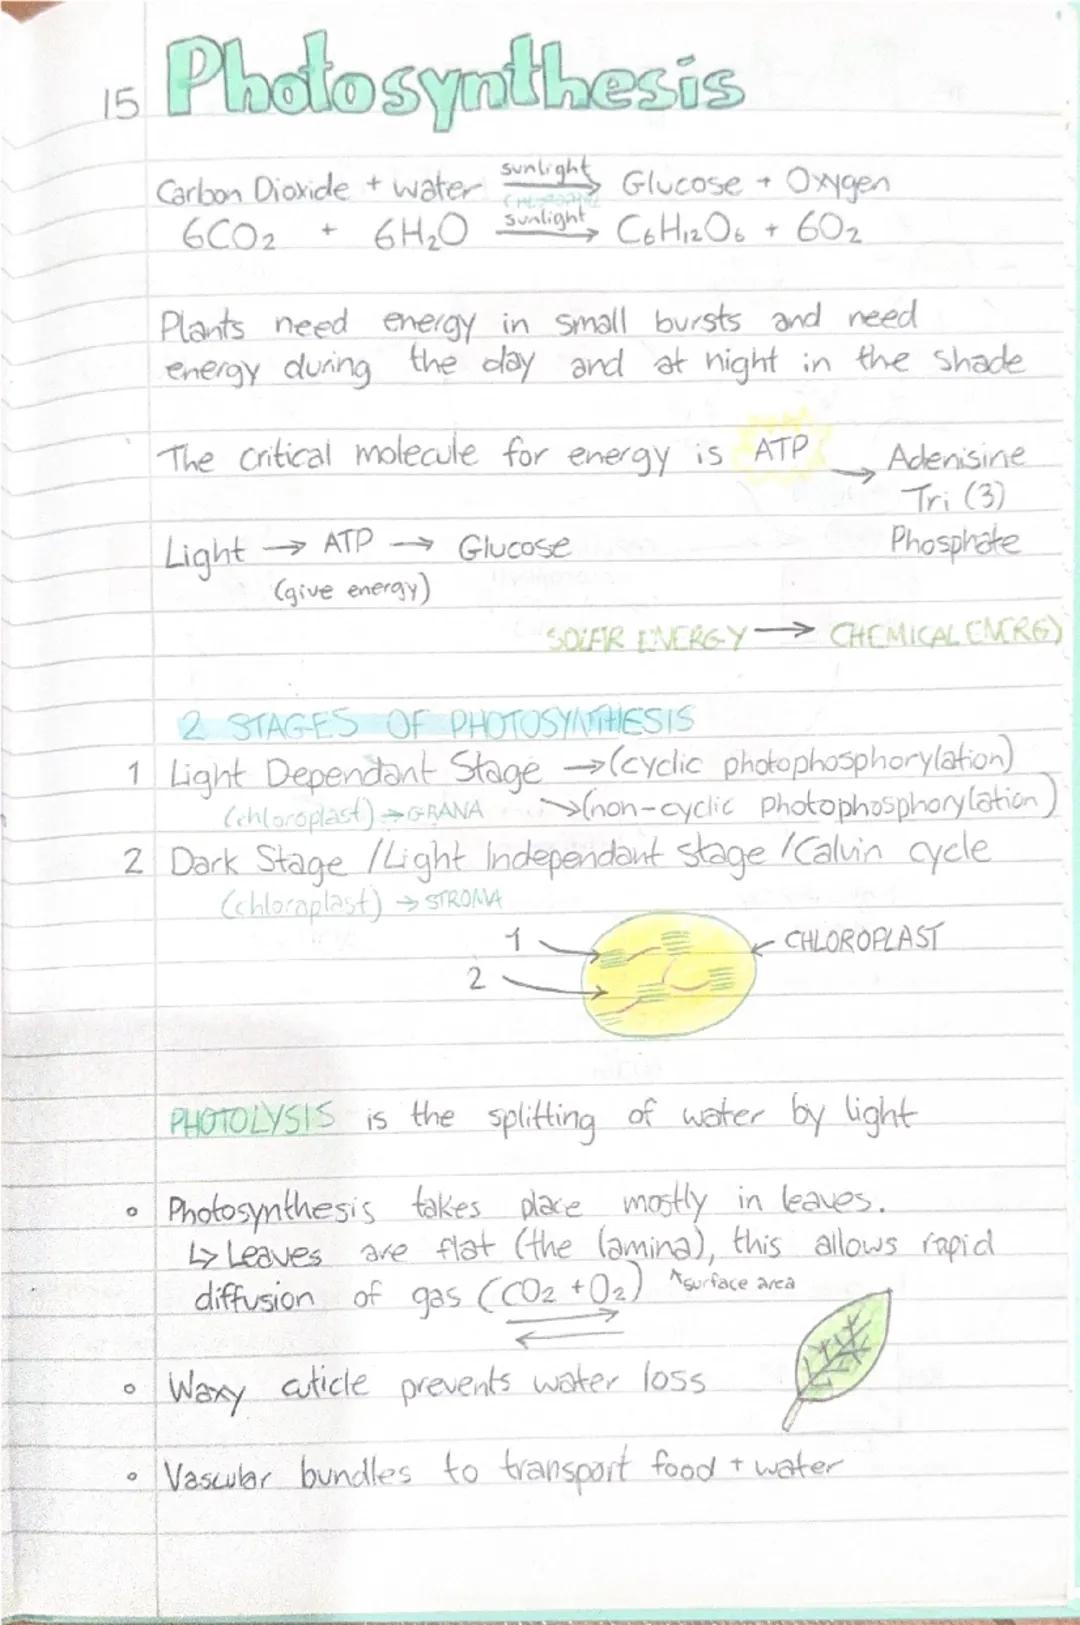 15 Photosynthesis
Carbon Dioxide + water sunlight → Glucose + Oxygen
6CO2 + 6H2O sunlight → C6H12O6 + 6O2
Plants need energy in small bursts and need
energy during the day and at night in the shade
The critical molecule for energy is ATP → Adenisine
Tri (3)
Phosphate
Light → ATP → Glucose
(give energy)
SOLAR ENERGY → CHEMICAL ENERGY
2 STAGES OF PHOTOSYNTHESIS
1 Light Dependant Stage → (cyclic photophosphorylation)
(chloroplast) → GRANA → (non-cyclic photophosphorylation)
2 Dark Stage / Light Independant stage / Calvin cycle
(chloroplast) → STROMA
1
CHLOROPLAST
2
PHOTOLYSIS is the splitting of water by light
• Photosynthesis takes place mostly in leaves.
↳ Leaves are flat (the lamina), this allows rapid
diffusion of gas (CO2 + O2) ↑surface area
• Waxy cuticle prevents water loss
• Vascular bundles to transport food + water